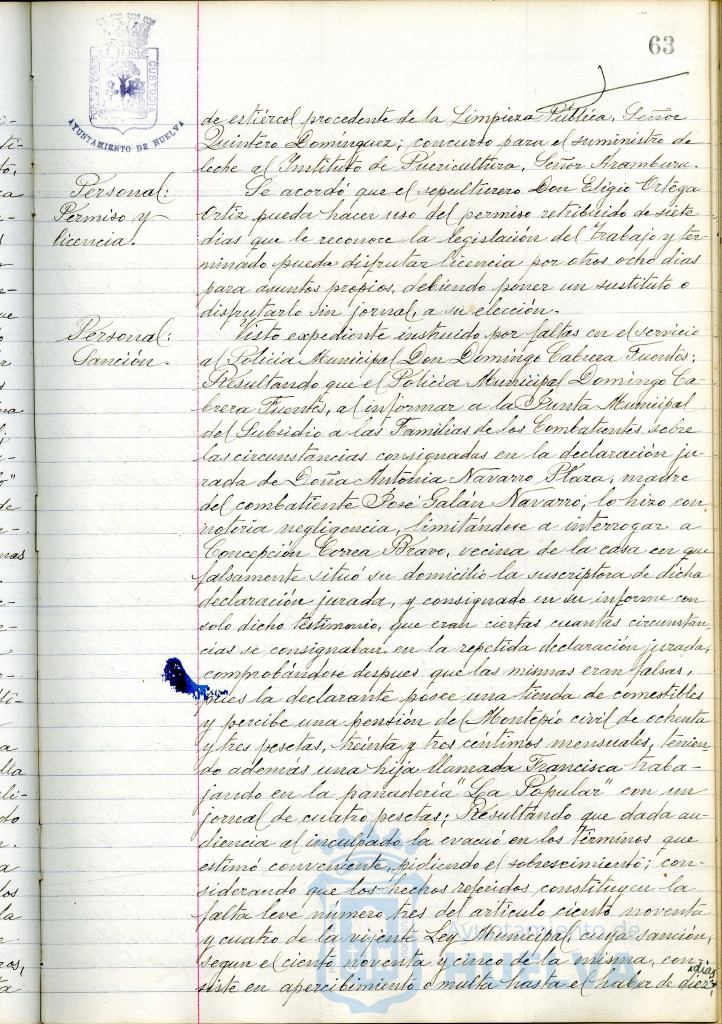 63
AYUNTAMIENTO DE HUELVA
de estiércol procedente de la Limpieza Pública, Señor
Quintero Domínguez; concurso para el suministro de
leche al Instituto de Puericultura, Señor Aramburu.
Personal:
Permiso y
licencia.
Se acordó que el sepulturero Don Eligio Ortega
Ortiz pueda hacer uso del permiso retribuido de siete
dias que le reconoce la legislación del Trabajo y ter-
minado pueda disfrutar licencia por otros ocho dias
para asuntos propios, debiendo poner un sustituto o
disfrutarlo sin jornal, a su elección.
Personal:
Sanción.
Visto expediente instruido por faltas en el servicio
al Policía Municipal Don Domingo Cabrera Fuentes;
Resultando que el Policía Municipal Domingo Ca-
brera Fuentes, al informar a la Junta Municipal
del Subsidio a las Familias de los Combatientes sobre
las circunstancias consignadas en la declaración ju-
rada de Doña Antonia Navarro Plaza, madre
del combatiente José Galán Navarro, lo hizo con
notoria negligencia, limitándose a interrogar a
Concepción Correa Bravo, vecina de la casa en que
falsamente situó su domicilio la suscriptora de dicha
declaración jurada, y consignado en su informe con
solo dicho testimonio, que eran ciertas cuantas circunstan-
cias se consignaban en la repetida declaración jurada,
comprobándose despues que las mismas eran falsas,
pues la declarante posee una tienda de comestibles
y percibe una pensión del Montepío civil de ochenta
y tres pesetas, treinta y tres céntimos mensuales, tenien-
do además una hija llamada Francisca traba-
jando en la panadería "La Popular" con un
jornal de cuatro pesetas; Resultando que dada au-
diencia al inculpado la evacuó en los términos que
estimó conveniente, pidiendo el sobreseimiento; con-
siderando que los hechos referidos constituyen la
falta leve número tres del articulo ciento noventa
y cuatro de la vijente Ley Municipal, cuya sanción,
segun el ciento noventa y cinco de la misma, con-
siste en apercibimiento o multa hasta el haber de diez dias
Ayuntamiento de
HUELVA